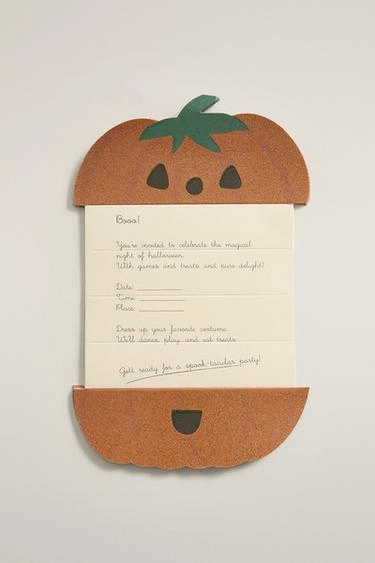 Booo!
You're invited to celebrate the magical
night of halloween.
With games and treats and pure delight!
Date:
Time:
Place:
Dress up your favorite costume.
We'll dance, play and eat treats
Gett ready for a spook-tacular party!